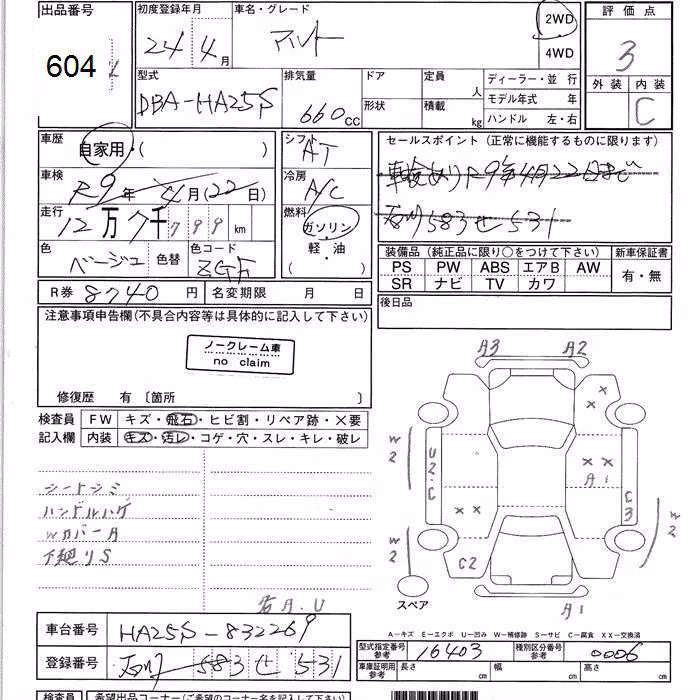 出品番号 初度登録年月 車名・グレード 2WD 評価点
604 24年 4月 アルト 4WD 3
型式 排気量 ドア 定員 人 ディーラー・並行 外装 内装
DBA-HA25S 660cc 形状 積載 kg モデル年式 年 C
ハンドル 左・右
車歴 自家用・( ) シフト AT セールスポイント (正常に機能するものに限ります)
車検 R9年 4月(22日) 冷房 A/C 車検ありR9年4月22日まで
走行 12万7千799km 燃料 ガソリン 石川583せ531
軽・油
( )
色 ベージュ 色替 色コード ZGF 装備品 (純正品に限り○をつけて下さい) 新車保証書
PS PW ABS エアB AW 有・無
SR ナビ TV カワ
R券 8740円 名変期限 月 日 後日品
注意事項申告欄(不具合内容等は具体的に記入して下さい)
ノークレーム車
no claim
修復歴 有 〔箇所 〕
検査員 FW キズ・飛石・ヒビ割・リペア跡・×要
記入欄 内装 キズ・汚レ・コゲ・穴・スレ・キレ・破レ
シートシミ
ハンドルハゲ
Wカバーム
下廻りS
右A.U
A3 A2
× ×
W2 U2・C × × A1 C3
× ×
W2 C2 W2
スペア A1
A-キズ E-エクボ U-凹み W-補修跡 S-サビ C-腐食 XX-交換済
車台番号 HA25S-832269
型式指定番号 参考 16403 種別区分番号 参考 0006
登録番号 石川 583 せ 531
車庫証明用 参考 長さ 幅 高さ
検査員 希望出品コーナー(ご希望のコーナー名を記入して下さい)